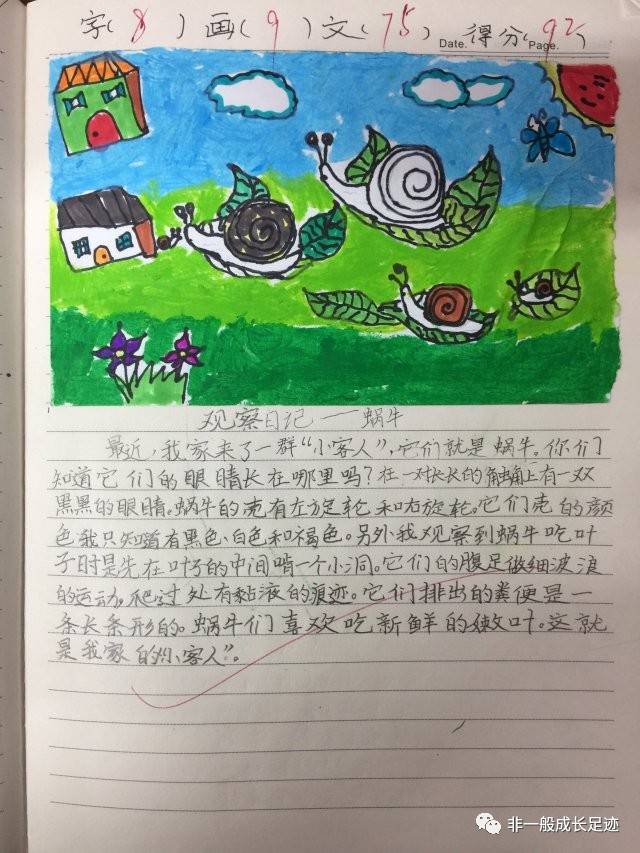 字(8)画(9)文(75) Date. 得分(92) Page.
观察日记——蜗牛
最近,我家来了一群“小客人”,它们就是蜗牛。你们
知道它们的眼睛长在哪里吗?在一对长长的触角上有一双
黑黑的眼睛。蜗牛的壳有左旋轮和右旋轮。它们壳的颜
色我只知道有黑色、白色和褐色。另外我观察到蜗牛吃叶
子时是先在叶子的中间啃一个小洞。它们的腹足做细波浪
的运动,爬过处有黏液的痕迹。它们排出的粪便是一
条长条形的。蜗牛们喜欢吃新鲜的嫩叶。这就
是我家的“小客人”。
非一般成长足迹